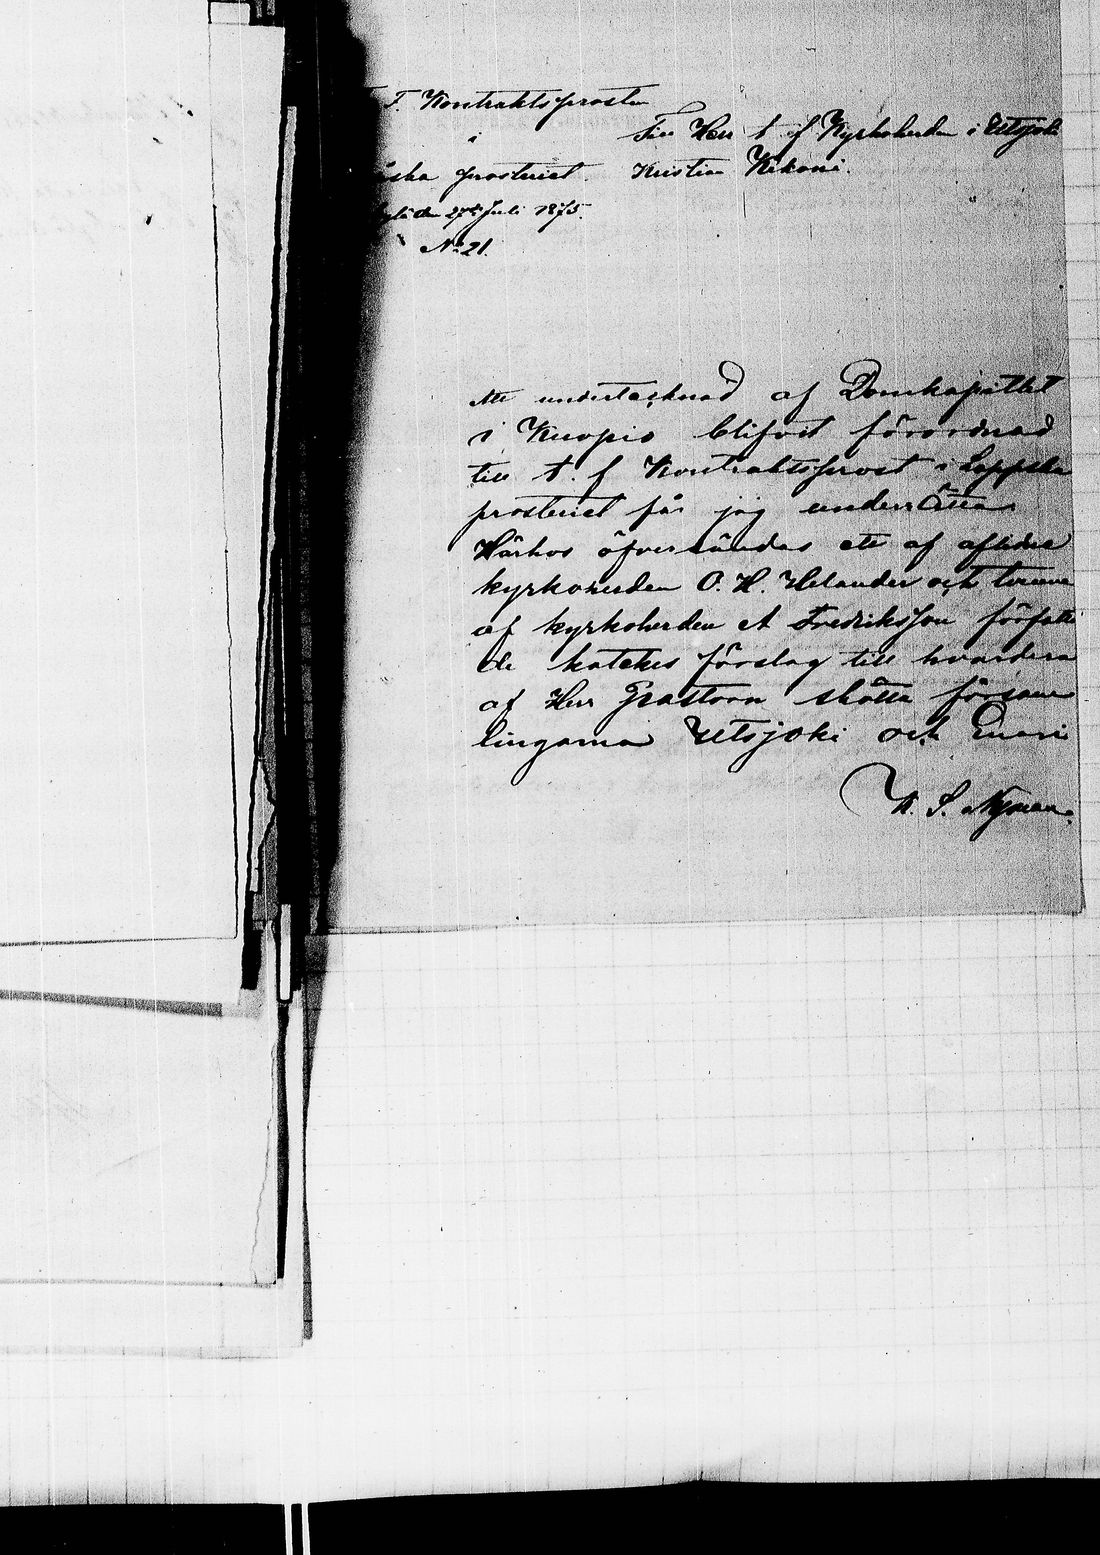 F. Kontraktsprosten
i
ska prosteriet.
den 27de Juli 1875.
No 21.
Till Herr t. f. Kyrkoherden i Utsjoki
Kristian Kekoni.
Att undertecknad af Domkapitlet
i Kuopio blifvit förordnad
till t. f. Kontraktsprost i Lappska
prosteriet får jag underrätta
Härhos öfversändas ett af aflidne
kyrkoherden O. H. Helander och
af kyrkoherden A Fredriksson författa
de katekes förslag till hvardera
af Herr Pastorn skötta försam
lingarna Utsjoki och Enari
K. S. Nyman.